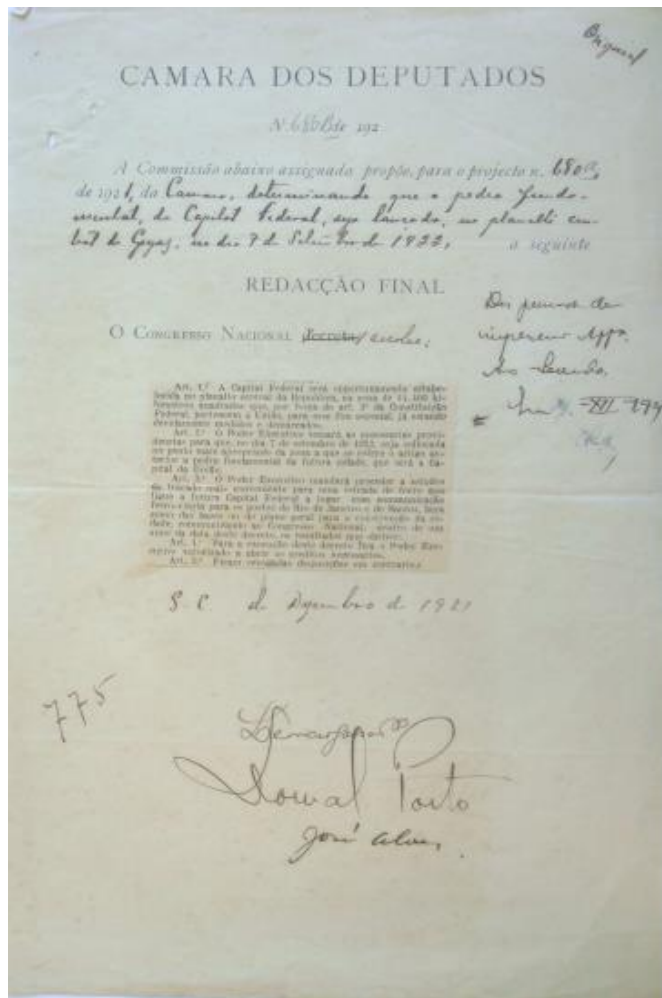 Original
CAMARA DOS DEPUTADOS
N. 680B de 192
A Commissão abaixo assignada propõe, para o projecto n. 680A,
de 1921, da Camara, determinando que a pedra funda-
mental, da Capital Federal, seja lançada, no planalto cen-
tral de Goyaz, no dia 7 de Setembro de 1922, a seguinte
REDACÇÃO FINAL
O CONGRESSO NACIONAL decreta / resolve:
impressa App.
Ao Senado.
Em XII 192
Art. 1.º A Capital Federal será opportunamente estabe-
lecida no planalto central da Republica, na zona de 14.400 ki-
lometros quadrados que, por força do art. 3º da Constituição
Federal, pertencem á União, para esse fim especial, já estando
devidamente medidos e demarcados.
Art. 2.º O Poder Executivo tomará as necessarias provi-
dencias para que, no dia 7 de setembro de 1922, seja collocada
no ponto mais apropriado da zona a que se refere o artigo an-
terior a pedra fundamental da futura cidade, que será a Ca-
pital da União.
Art. 3.º O Poder Executivo mandará proceder a estudos
do traçado mais conveniente para uma estrada de ferro que
ligue a futura Capital Federal a logar com communicação
ferro-viaria para os portos do Rio de Janeiro e de Santos, bem
como das bases ou do plano geral para a construcção da ci-
dade, communicando ao Congresso Nacional, dentro de um
anno da data deste decreto, os resultados que obtiver.
Art. 4.º Para a execução deste decreto fica o Poder Exe-
cutivo autorizado a abrir os creditos necessarios.
Art. 5.º Ficam revogadas disposições em contrario.
S. C. de Dezembro de 1921
775
Porto
José Alves.